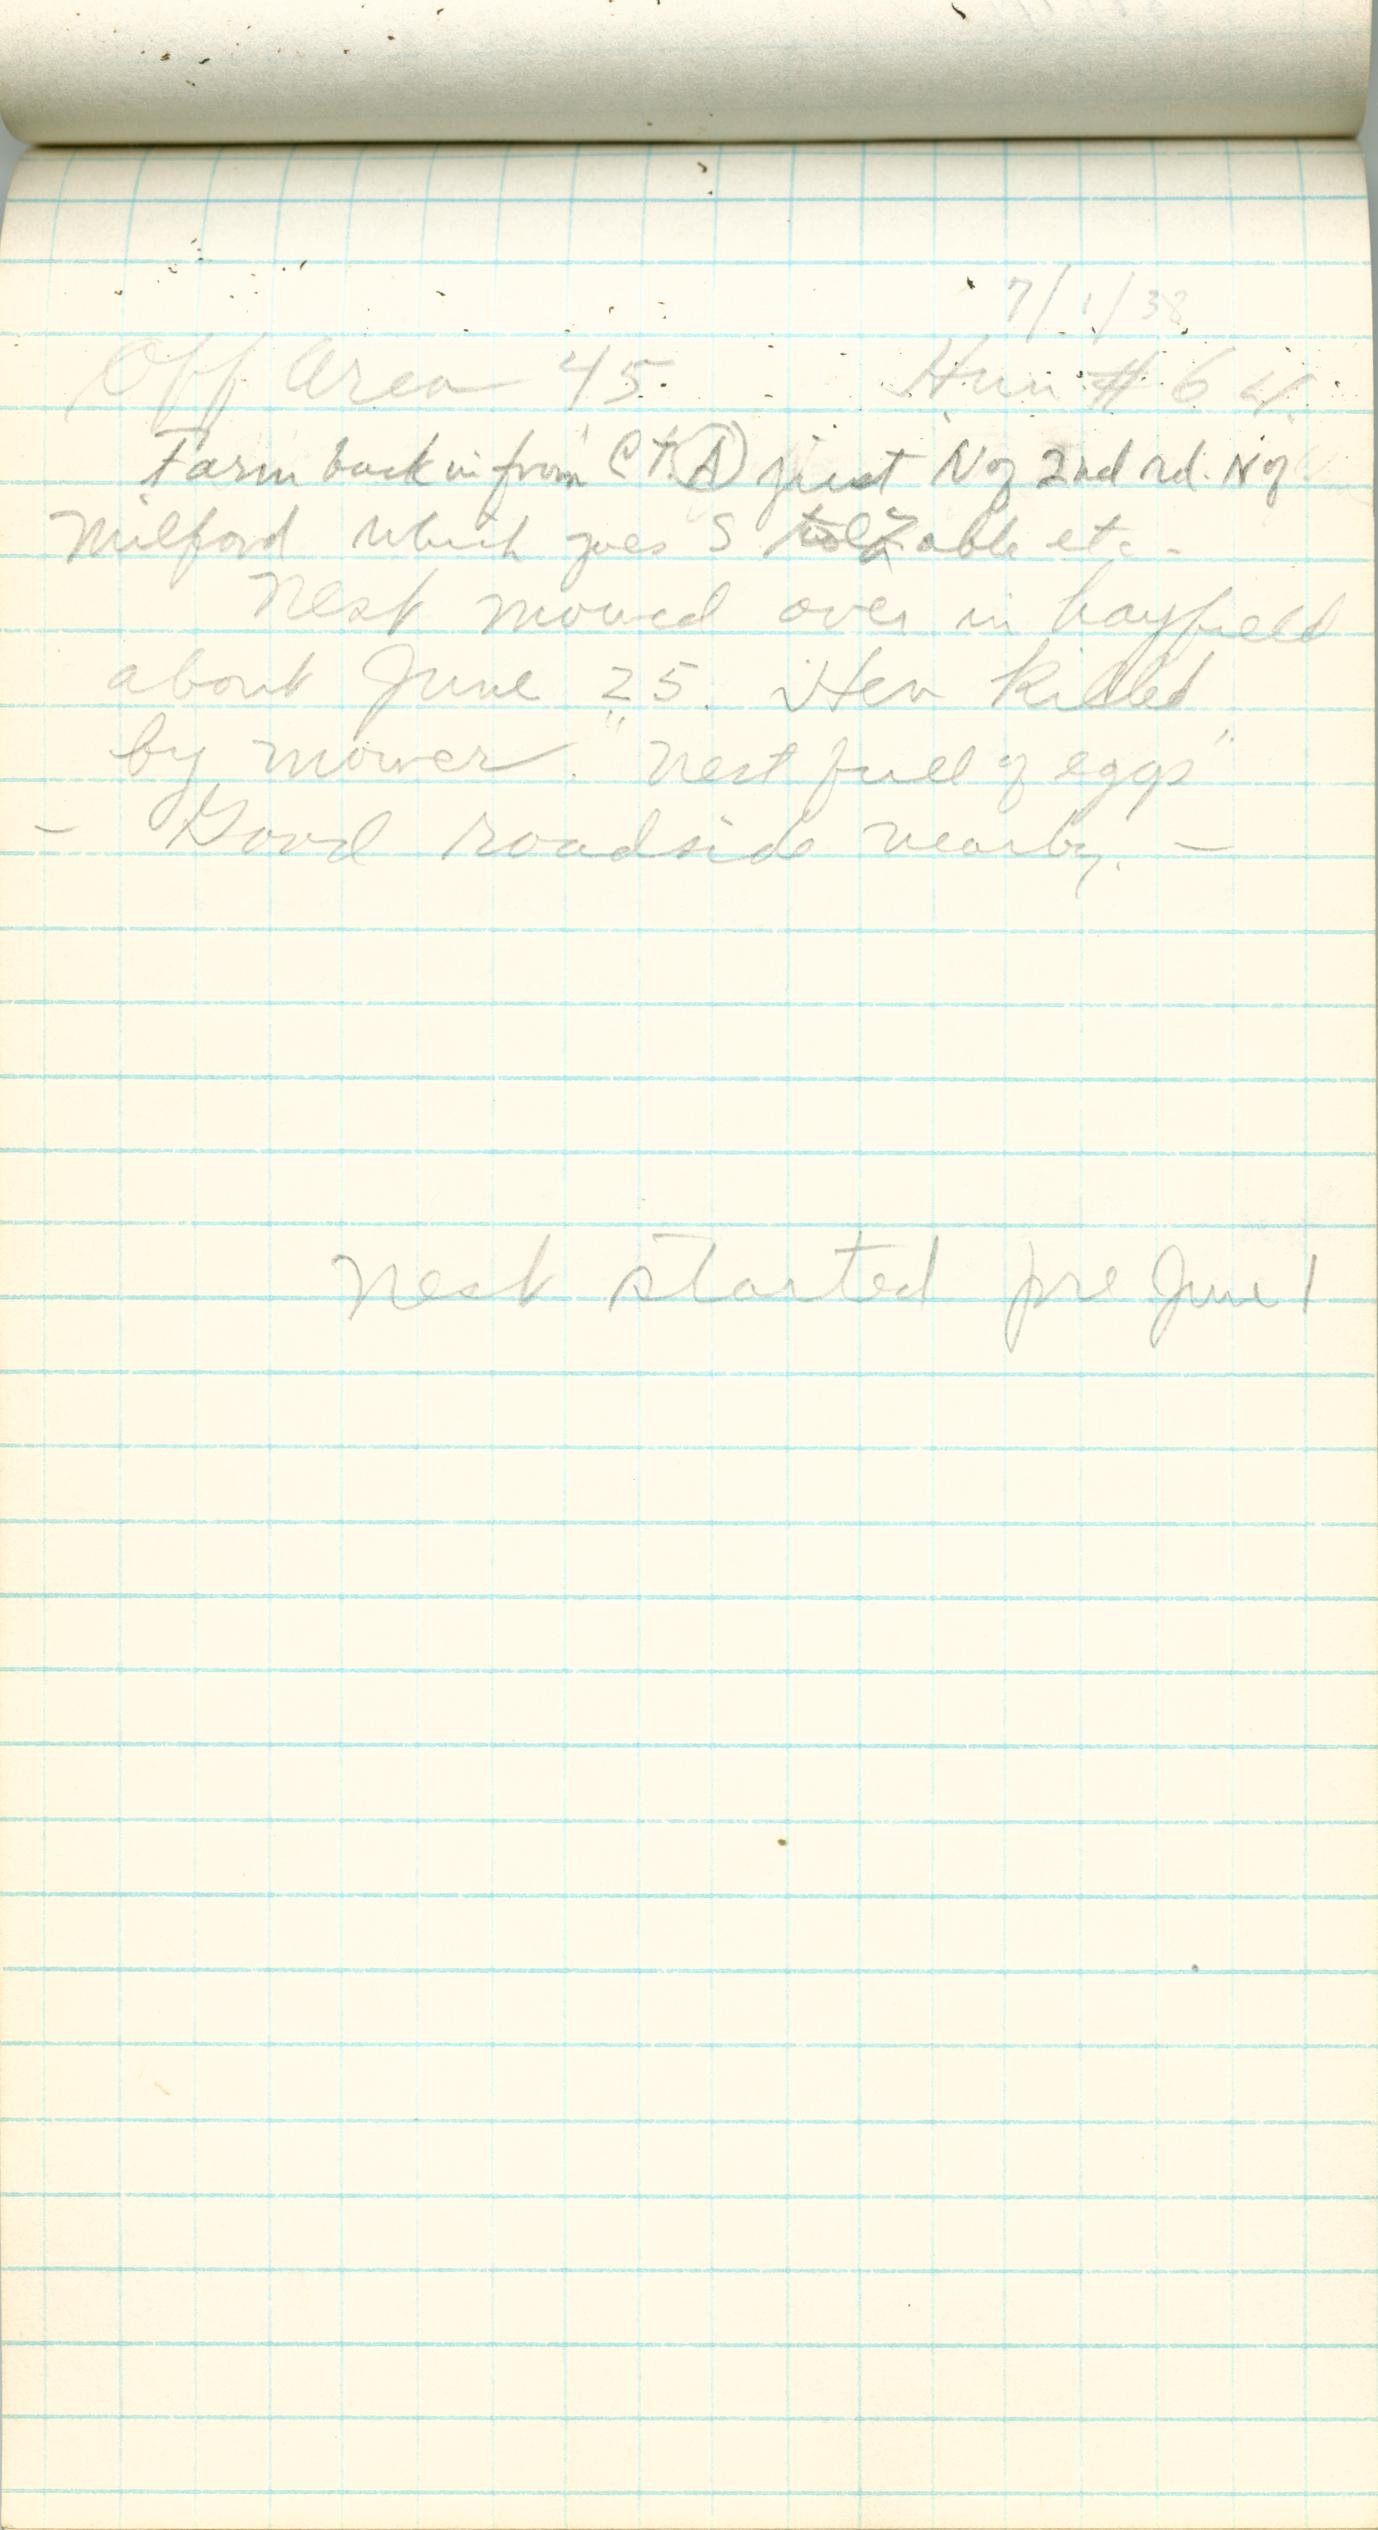 7/1/38
Off Area 45 Hun # 64
Farm back in from Ct. A just N of 2nd rd. N of
Milford which goes S to able etc.
Nest mowed over in hayfield
about June 25. Hen killed
by mower. "Nest full of eggs"
- Good roadside nearby. -
Nest started pre June 1